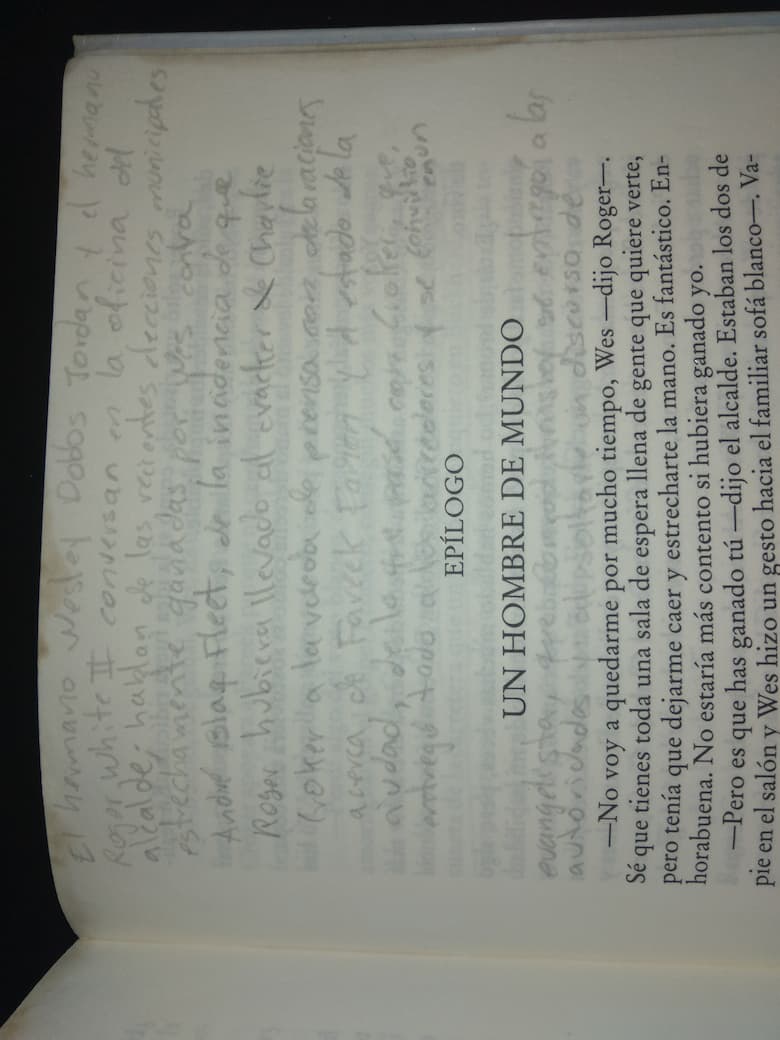 El hermano Wesley Dobbs Jordan y el hermano
Roger White II conversan en la oficina del
alcalde; hablan de las recientes elecciones municipales
estrechamente ganadas por Wes contra
André Blaq Fleet, de la incidencia de que
Roger hubiera llevado al cracker Charlie
Croker a la rueda de prensa con declaraciones
acerca de Fareek Fanon y el estado de la
ciudad, de lo que pasó con Croker, que,
entregó todo a los acreedores y se convirtió en un
EPÍLOGO
UN HOMBRE DE MUNDO
evangelista, que Conrad Hensley se entregó a las
autoridades y un discurso de
—No voy a quedarme por mucho tiempo, Wes —dijo Roger—.
Sé que tienes toda una sala de espera llena de gente que quiere verte,
pero tenía que dejarme caer y estrecharte la mano. Es fantástico. En-
horabuena. No estaría más contento si hubiera ganado yo.
—Pero es que has ganado tú —dijo el alcalde. Estaban los dos de
pie en el salón y Wes hizo un gesto hacia el familiar sofá blanco—. Va-